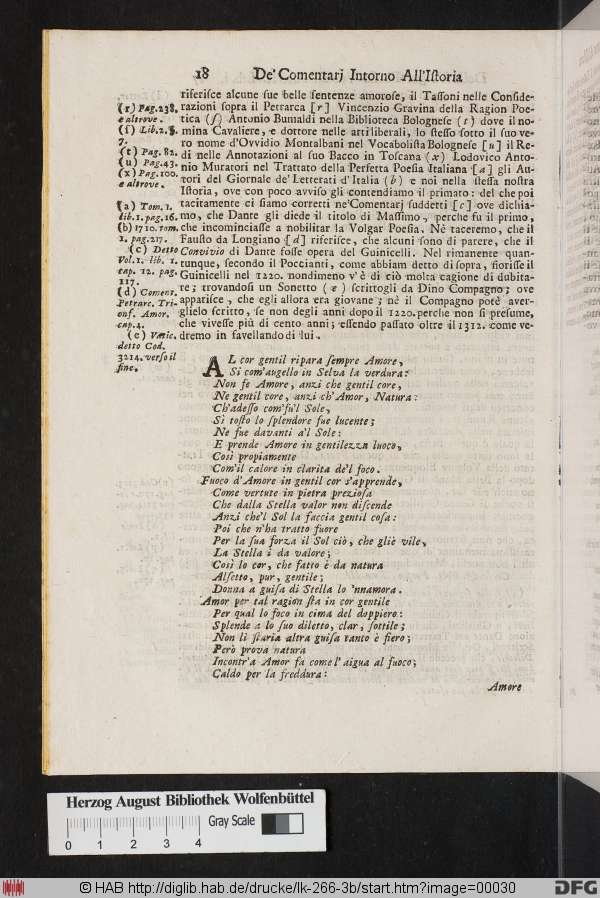 18 De' Comentarj Intorno All'Iſtoria
riferiſce alcune ſue belle ſentenze amoroſe, il Taſſoni nelle Conſide-
razioni ſopra il Petrarca [r] Vincenzio Gravina della Ragion Poe-
tica (ſ) Antonio Bumaldi nella Biblioteca Bologneſe (t) dove il no-
mina Cavaliere, e dottore nelle arti liberali, lo ſteſſo ſotto il ſuo ve-
ro nome d'Ovvidio Montalbani nel Vocaboliſta Bologneſe [u] il Re-
di nelle Annotazioni al ſuo Bacco in Toſcana (x) Lodovico Anto-
nio Muratori nel Trattato della Perfetta Poeſia Italiana [a] gli Au-
tori del Giornale de' Letterati d'Italia (b) e noi nella ſteſſa noſtra
Iſtoria, ove con poco avviſo gli contendiamo il primato: del che poi
tacitamente ci ſiamo corretti ne' Comentarj ſuddetti [c] ove dichia-
mo, che Dante gli diede il titolo di Maſſimo, perche fu il primo,
che incominciaſſe a nobilitar la Volgar Poeſia. Nè taceremo, che il
Fauſto da Longiano [d] riferiſce, che alcuni ſono di parere, che il
Convivio di Dante foſſe opera del Guinicelli. Nel rimanente quan-
tunque, ſecondo il Poccianti, come abbiam detto di ſopra, fioriſſe il
Guinicelli nel 1220. nondimeno v'è di ciò molta cagione di dubita-
re; trovandoſi un Sonetto (e) ſcrittogli da Dino Compagno; ove
appariſce, che egli allora era giovane; nè il Compagno potè aver-
glielo ſcritto, ſe non degli anni dopo il 1220. perche non ſi preſume,
che viveſſe più di cento anni; eſſendo paſſato oltre il 1312. come ve-
dremo in favellando di lui.
(r) Pag. 238.
e altrove.
(ſ) Lib. 2. §.
7.
(t) Pag. 82.
(u) Pag. 43.
(x) Pag. 100.
e altrove.
(a) Tom. 1.
lib. 1. pag. 16.
(b) 1710. tom.
1. pag. 217.
(c) Detto
Vol. 1. lib. 1.
cap. 12. pag.
117.
(d) Coment.
Petrarc. Tri-
onf. Amor.
cap. 4.
(e) Vatic.
detto Cod.
3214. verſo il
fine.
AL cor gentil ripara ſempre Amore,
Si com' augello in Selva la verdura:
Non fe Amore, anzi che gentil core,
Ne gentil core, anzi ch'Amor, Natura:
Ch'adeſſo com' fu'l Sole,
Sì toſto lo ſplendore fue lucente;
Ne fue davanti a'l Sole:
E prende Amore in gentilezza luoco,
Così propiamente
Com'il calore in clarita de'l foco.
Fuoco d'Amore in gentil cor s'apprende,
Come vertute in pietra prezioſa
Che dalla Stella valor non diſcende
Anzi che'l Sol la faccia gentil coſa:
Poi che n'ha tratto fuore
Per la ſua forza il Sol ciò, che gliè vile,
La Stella i da valore;
Così lo cor, che fatto è da natura
Alſetto, pur, gentile;
Donna a guiſa di Stella lo 'nnamora.
Amor per tal ragion ſta in cor gentile
Per qual lo foco in cima del doppiero:
Splende a lo ſuo diletto, clar, ſottile;
Non li ſtaria altra guiſa tanto è fiero;
Però prova natura
Incontr'a Amor fa come l'aigua al fuoco;
Caldo per la freddura:
Amore
Herzog August Bibliothek Wolfenbüttel
0 1 2 3 4 Gray Scale
© HAB http://diglib.hab.de/drucke/lk-266-3b/start.htm?image=00030
DFG